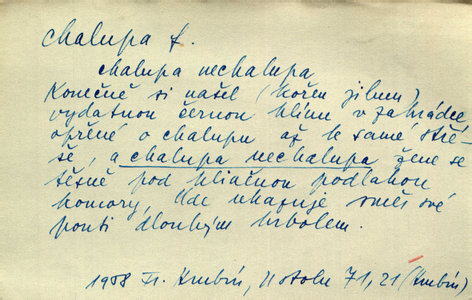 chalupa f.
chalupa nechalupa
Konečně si našel (kořen jilmu)
vydatnou černou hlínu v zahrádce
opřené o chalupu až k samé stře-
še, a chalupa nechalupa žene se
těsně pod hliněnou podlahou
komory, kde ukazuje směr své
pouti dlouhým hrbolem.
1958 Fr. Hrubín, U stolu 71, 21 (Hrubín)